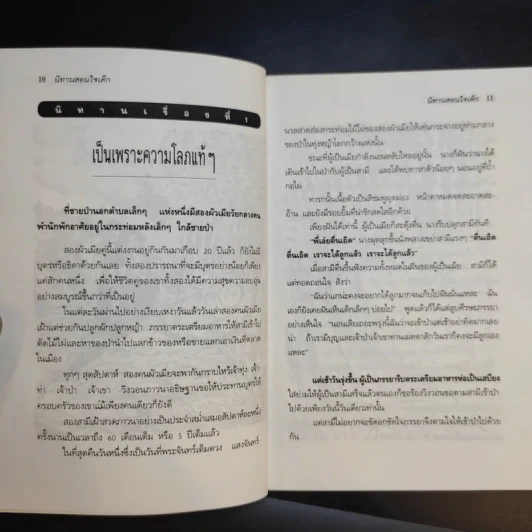 10 นิทานสอนใจเด็ก
นิทานเรื่องที่ 1
เป็นเพราะความโลภแท้ๆ
ที่ชายป่านอกตำบลเล็กๆ แห่งหนึ่งมีสองผัวเมียวัยกลางคน
พำนักพักอาศัยอยู่ในกระท่อมหลังเล็กๆ ใกล้ชายป่า
สองผัวเมียคู่นี้แต่งงานอยู่กินกันมาเกือบ 20 ปีแล้ว ก็ยังไม่มี
บุตรหรือธิดาด้วยกันเลย ทั้งสองปรารถนาที่จะมีบุตรอย่างน้อยก็เพียง
แค่สักคนหนึ่ง เพื่อให้ชีวิตคู่ของเขาทั้งสองได้มีความสุขความอบอุ่น
อย่างสมบูรณ์ขึ้นกว่าที่เป็นอยู่
ในแต่ละวันผ่านไปอย่างเงียบเหงาวันแล้ววันเล่าสองคนผัวเมีย
เฝ้าแต่ช่วยกันปลูกผักปลูกหญ้า ภรรยาตระเตรียมอาหารให้สามีเข้าไป
ตัดไม้ไผ่และหาของป่านำไปแลกข้าวของหรือขายแลกเอาเงินที่ตลาด
ในเมือง
ทุกๆ สุดสัปดาห์ สองคนผัวเมียจะพากันกราบไหว้เจ้าทุ่ง เจ้า
ท่า เจ้าป่า เจ้าเขา วิงวอนภาวนาอธิษฐานขอให้ประทานบุตรให้
ครอบครัวของเขาแม้เพียงคนเดียวก็ยังดี
สองสามีเฝ้าสวดภาวนาอย่างเป็นประจำสม่ำเสมอสัปดาห์ละหนึ่ง
ครั้งนานเป็นเวลาถึง 60 เดือนเต็ม หรือ 5 ปีเต็มแล้ว
ในที่สุดคืนวันหนึ่งซึ่งเป็นวันที่พระจันทร์เต็มดวง แสงจันทร์
นิทานสอนใจเด็ก 11
นวลสาดส่องกระท่อมไม้ไผ่ของสองผัวเมียให้เด่นกระจ่างอยู่ท่ามกลาง
ของป่าในทุ่งหญ้าโลกกว้างแห่งนั้น
ขณะที่ผู้เป็นเมียกำลังนอนหลับใหลอยู่นั้น นางก็ฝันว่านางได้
เดินเข้าไปในป่ากับผู้เป็นสามี และได้พบทารกตัวน้อยๆ นอนอยู่ที่ถ้ำ
กอไผ่
ทารกนั้นเนื้อตัวเป็นสีชมพูผุดผ่อง หน้าตาหมดจดสะอาดสะ-
อ้าน และยังมีรอยยิ้มที่น่ารักสดใสอีกด้วย
เพียงฝันได้เท่านี้ ผู้เป็นเมียก็สะดุ้งตื่น นางรีบปลุกสามีทันที
"พี่เอ๋ยตื่นเถิด" นางผุดลุกขึ้นนั่งพลางเขย่าสามีแรงๆ "ตื่นเถิด
ตื่นเถิด เราจะได้ลูกแล้ว เราจะได้ลูกแล้ว"
เมื่อสามีตื่นขึ้นฟังความทั้งหมดในฝันของผู้เป็นเมีย สามีก็ได้
แต่ทอดถอนใจ สั่งว่า
"ฉันว่าแกน่ะคงจะอยากได้ลูกมากจนเก็บไปฝันนั่นแหละ ฉัน
เองก็ยังเคยฝันแหงเห็นเด็กเล็กๆ อยู่บ่อยๆ ไป" พูดแล้วก็ได้แต่ลูบศีรษะภรรยา
อย่างเห็นใจ "นอนเสียเถอะพรุ่งนี้ฉันว่าจะเข้าป่าแต่เช้าอย่าคิดมากเลย
น่า ถ้าเรามีบุญและเจ้าป่าเจ้าเขาท่านเมตตาสักวันเราก็คงจะมีลูกเอง
แหละ"
แต่เช้าวันรุ่งขึ้น ผู้เป็นภรรยารีบตระเตรียมอาหารห่อเป็นเสบียง
ใส่ย่ามให้ผู้เป็นสามีเสร็จแล้วตนเองก็ขอร้องวิงวอนขอตามสามีเข้าป่า
ไปด้วยเพียงวันนี้วันเดียวเท่านั้น
แต่สามีไม่อยากจะขัดอกขัดใจภรรยาจึงตามใจให้เข้าป่าไปด้วย
กัน